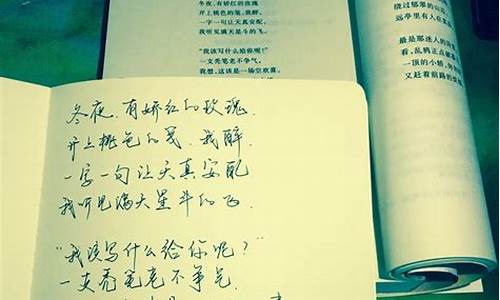 冬夜，有娇红的玫瑰
开上桃色的笺，我醉，
一字一句让天真安配
我听见满天星斗的飞
"我该写什么给你呢？"
一支秃笔老不争气，
冬夜，有娇红的玫瑰
开上桃色的笺，我醉，
一字一句让天真安配，
我听见满天星斗的飞。
"我该写什么给你呢？"
一支秃笔老不争气，
我想，这该是一场空欢喜，
绕过郁翠的山
远亭里有人在
最是那迷人的
看，乱鸦正点
一顶的小轿，
又赶着前路的